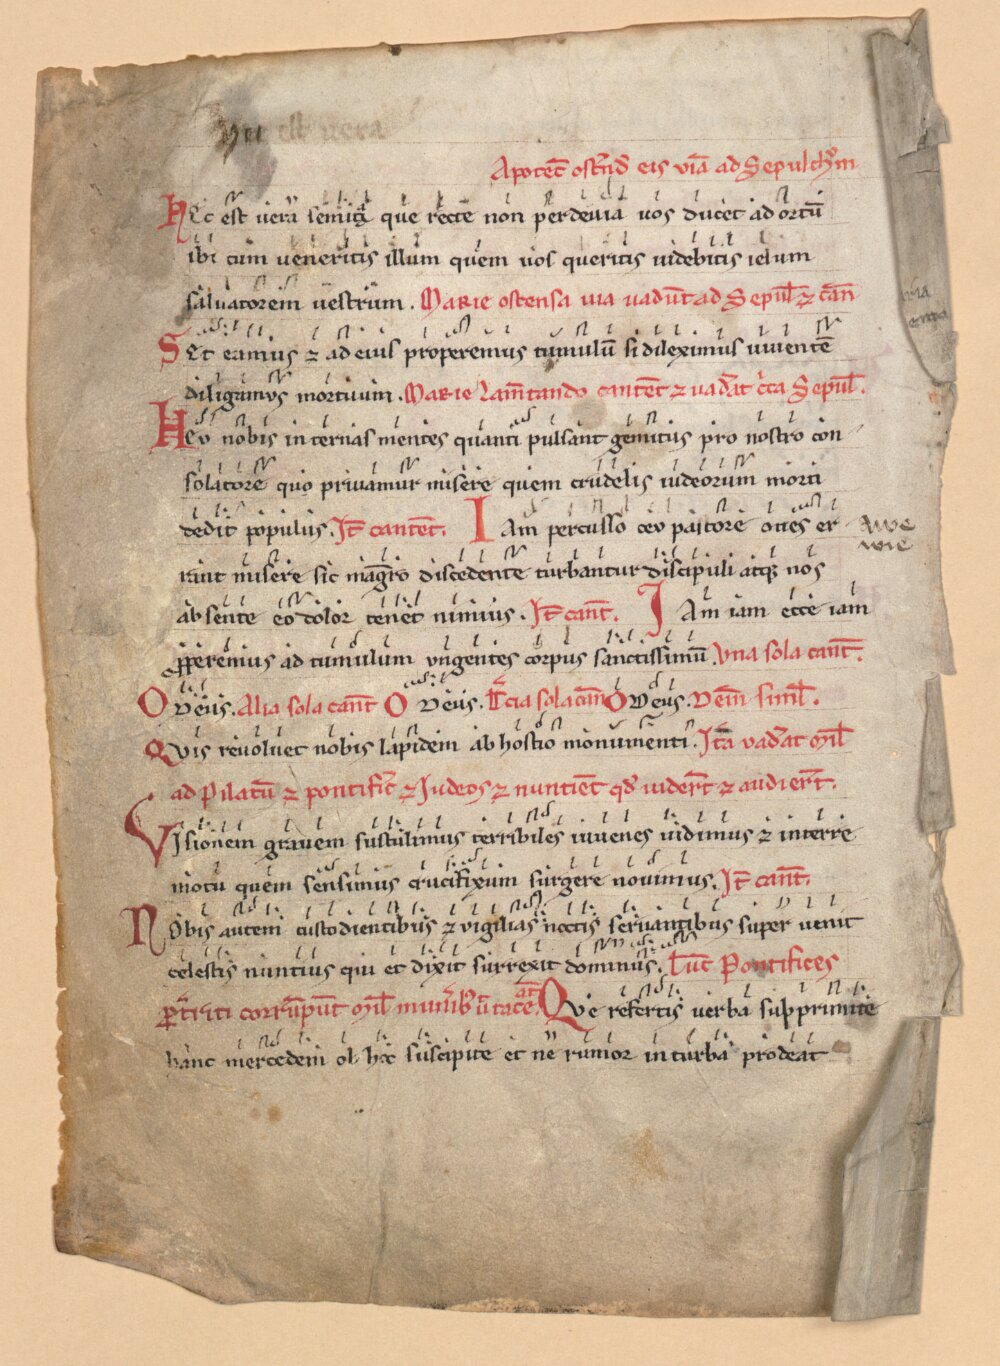 hec est vera
Apotec̄ ostn̄d eis viā ad Sepulchrm
Hec est uera semita que recte non per deuia uos ducet ad ortū
ibi cum ueneritis illum quem uos queritis uidebitis iesum
saluatorem uestrum. Marie ostensa uia uadūt ad Sepul̄ ⁊ can̄
Set eamus ⁊ ad eius properemus tumulū si dileximus uiuentē
diligamus mortuum. Marie Lamtando cantent ⁊ uadat cc̄a Sepul̄.
Hev nobis internas mentes quanti pulsant gemitus pro nostro con
solatore quo priuamur misere quem crudelis iudeorum morti
dedit populus. It̄ cantent. Iam percusso cev pastore oues er
rant misere sic magr̄o discedente turbantur discipuli atq; nos
absente eo dolor tenet nimius. It̄ cant̄. Iam iam ecce iam
ꝓperemus ad tumulum vngentes corpus sanctissimū Vna sola cant̄.
O deus. Alia sola cant̄ O deus. Tc̄ia sola can̄ O deus. Dem̄ simil̄.
Qvis reuoluet nobis lapidem ab hostio monumenti. Itā vadat mil̄
ad Pilatū ⁊ pontific̄ ⁊ Judeos ⁊ nuntient qd̄ uidert̄ ⁊ audiert̄.
Visionem grauem sustulimus terribiles iuuenes uidimus ⁊ in terre
motu quem sensimus crucifixum surgere nouimus. It̄ cant̄.
Nobis autem custodientibus ⁊ vigilias noctis seruantibus super uenit
celestis nuntius qui et dixit surrexit dominus. Tūc Pontifices
corrūpūt mil̄ munīb; ūt taceat Qve refertis uerba supprimite
hanc mercedem ob hoc suscipite et ne rumor in turba prodeat
awe
wie